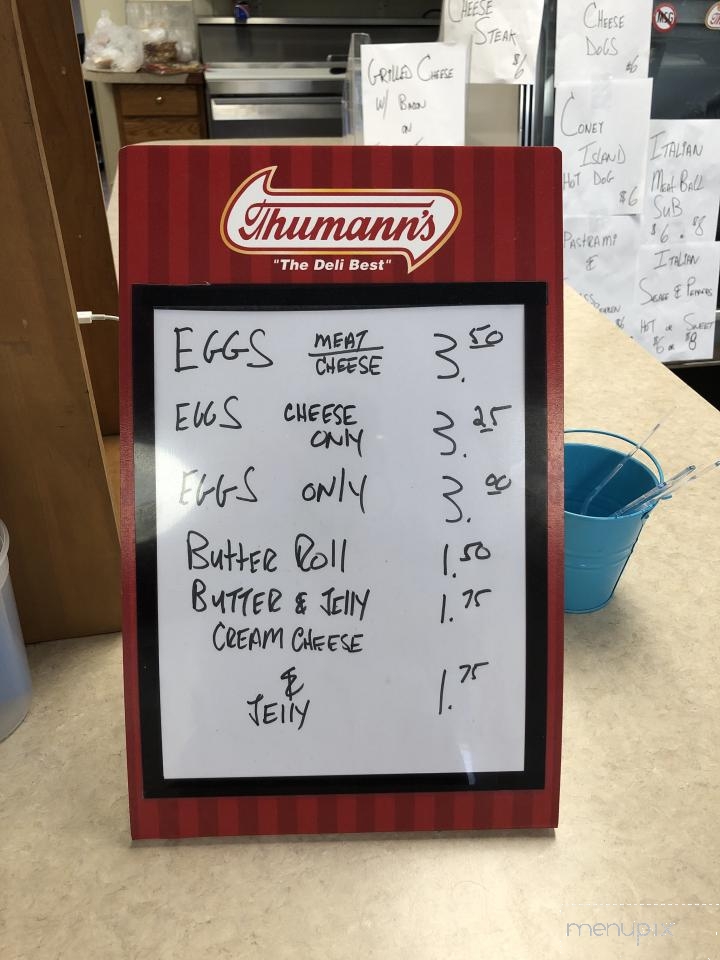 CHEESE
STEAK
$6
CHEESE
DOGS
$6
GRILLED CHEESE
W/ BACON
ON
CONEY
ISLAND
HOT DOG
$6
ITALIAN
MEAT BALL
SUB
$6 $8
PASTRAMI
&
$6
ITALIAN
& PEPPERS
HOT or SWEET
$6 or $8
Thumann's
"The Deli Best"
EGGS MEAT CHEESE 3.50
EGGS CHEESE ONLY 3.25
EGGS ONLY 3.00
BUTTER ROLL 1.50
BUTTER & JELLY 1.75
CREAM CHEESE
&
JELLY 1.75
menupix